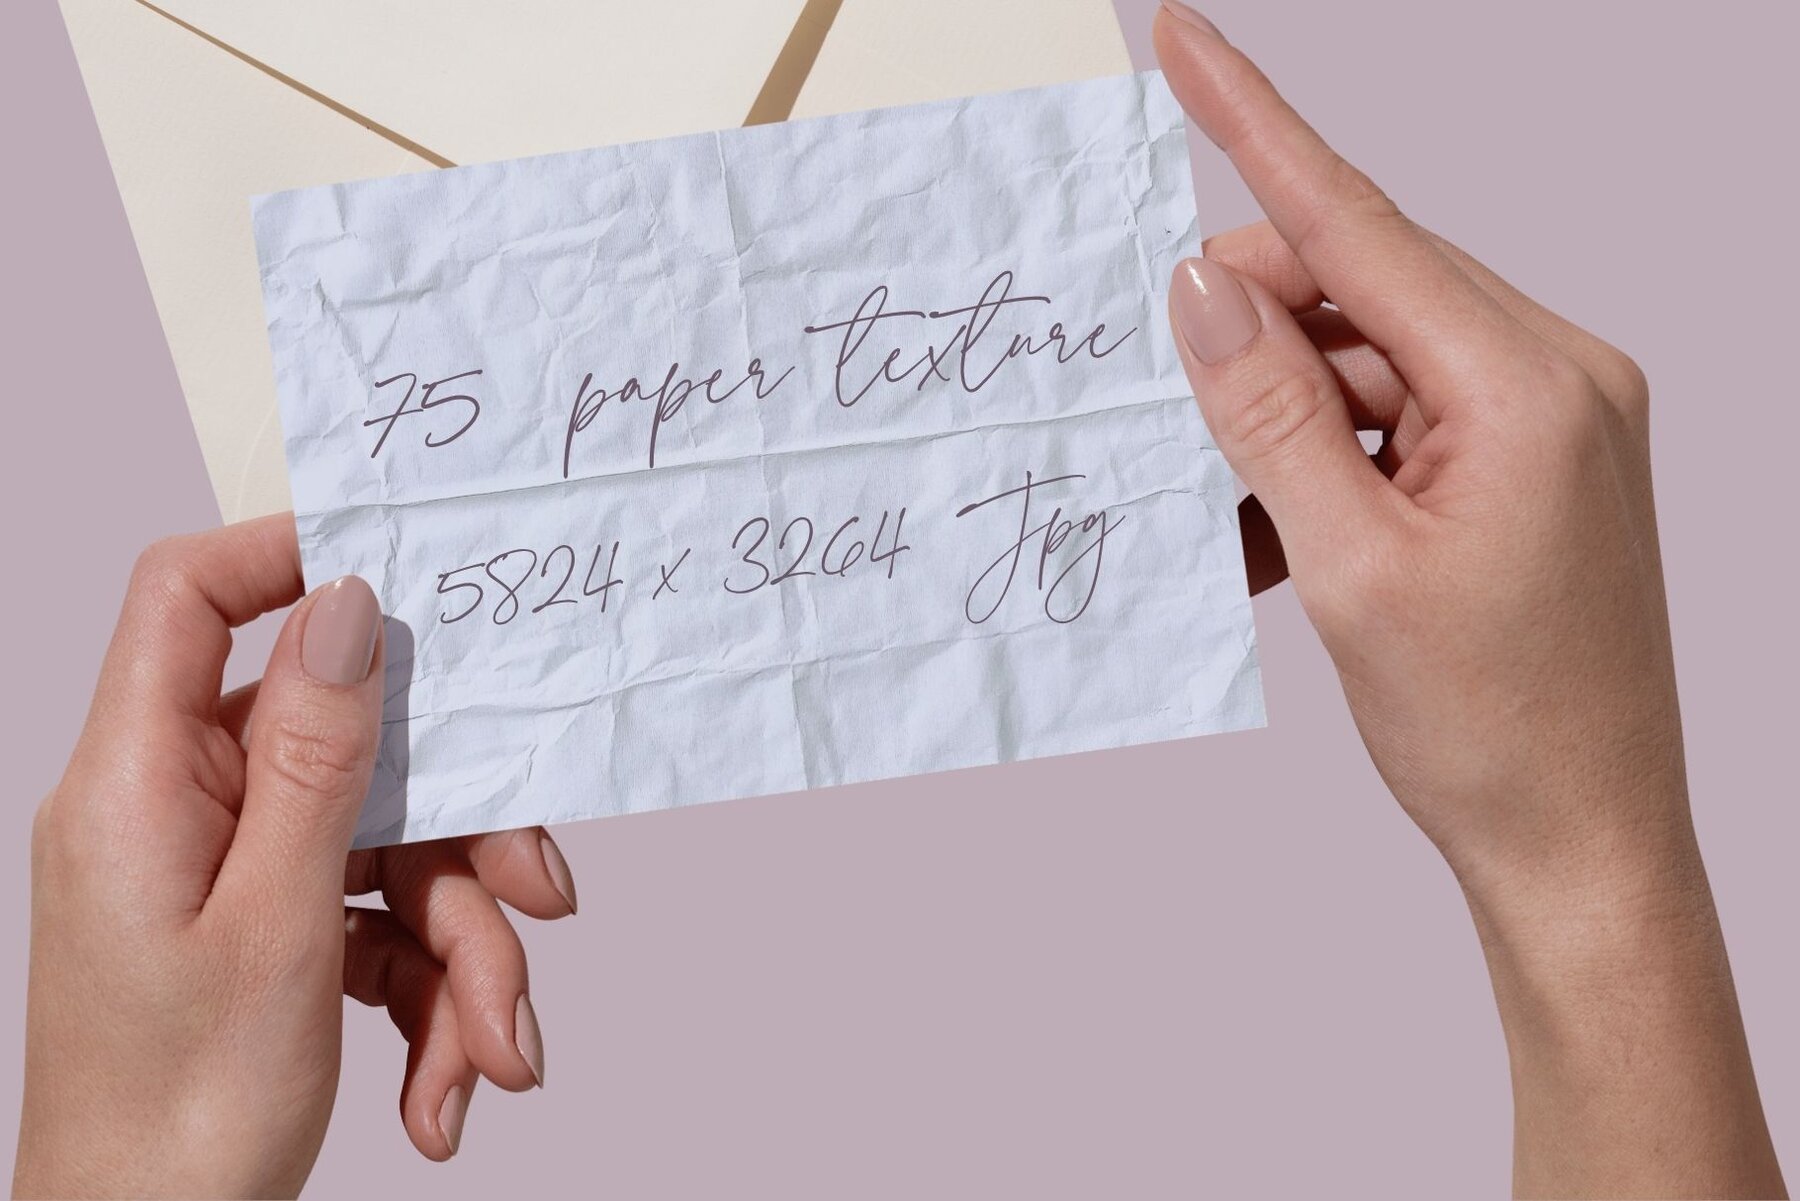 75 paper texture
5824 x 3264 Jpg